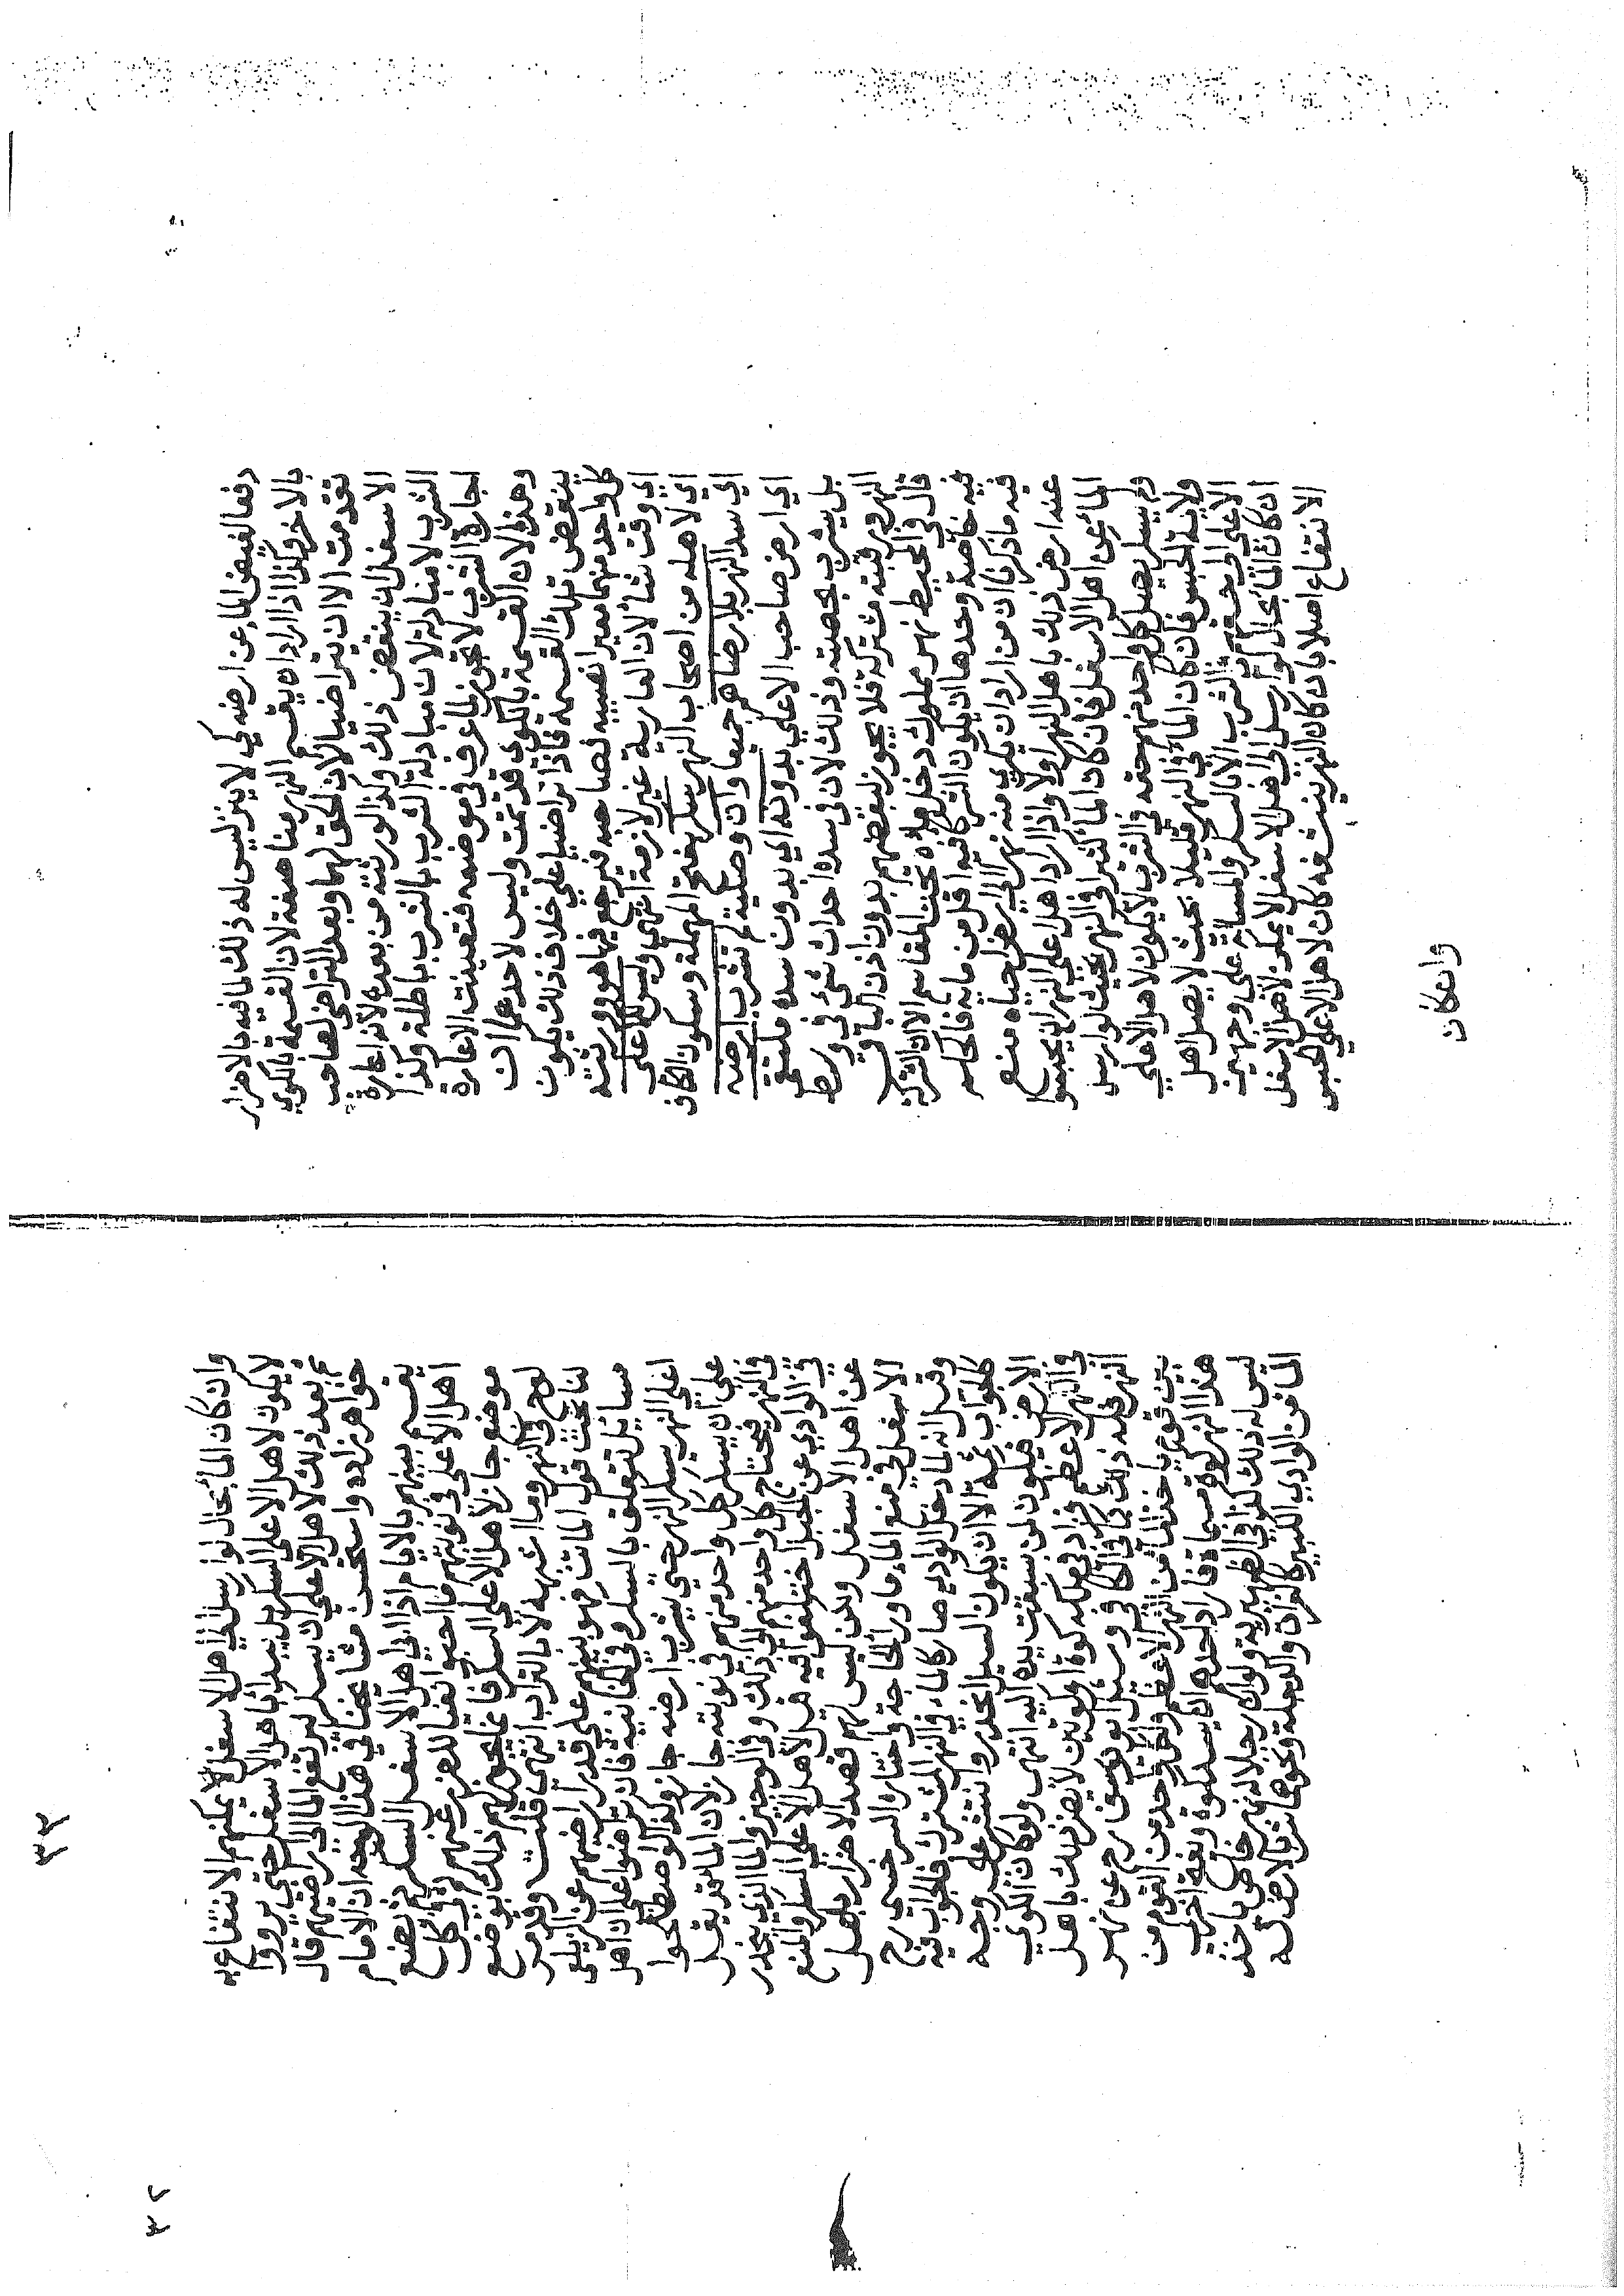 دفعا لفيض الماء عن ارضه كي لا ينز ليس له ذلك لما فيه بالاضرار
بالاخر وكذا اذا اراد ان يقسم النهر مناصفة لان القسمة بالكوي
تقدمت الا ان يتراضيا لان الحق لهما وبعد التراضي لصاحب
الاسفل ان ينقض ذلك وكذا لورثته من بعده لانه اعارة
الشرب لا مبادلة لان مبادلة الشرب بالشرب باطلة وكذا
اجارة الشرب لا تجوز لما عرف في موضعه فتعينت الاعارة
وهذا لان القسمة بالكوي قد تمت وليس لاحدهما ان
ينقض تلك القسمة فاذا تراضيا علي خلاف ذلك يكون
كل واحد منهما معير نصيبه لصاحبه فيرجع فيها هو وورثته
اي وقت شاء لان العارية غير لازمة انتهي وليس للاعلى
اي لاهله من اصحاب النهر سكر بفتح المهملة وسكون الكاف
اي سد النهر بلا رضاهم جميعا وان وصلية لم تشرب ارضه
اي ارض صاحب الاعلي بدونه اي بدون سده ملتقى
بل يشرب بحصته وذلك لان في سده احداث شئ في وسط
النهر ورقبته مشتركة فلا يجوز لبعضهم بدون اذن الباقي
قال في المحيط نهر مملوك دخل ماؤه تحت المقاسم الا ان الشركة
فيه خاصة وحدها ان يكون الشركا فيه اقل من ماية فالحكم
فيه ما ذكرنا ان من اراد ان يكري منه نهرا الي ارض احياه منع
عنه ارض ذلك باهل النهر اولا واذا اراد اهل اعلي النهر ان يحبسوا
الماء عن اهل الاسفل فان كان الماء كثيرا في النهر بحيث لو ارسل
ولم يسكر يصل كل واحد منهم حقه في الشرب لا يكون لاهل الاعلي
ولاية الحبس فان كان الماء في النهر قليلا بحيث لا يصل اهل
الاعلي الى حقهم في الشرب الا بالسكر والمسالة علي وجهين
ان كان الماء بحال لو ارسل الى اهل الاسفل لا يمكن لاهل الاسفل
الانتفاع اصلا بان كان النهر ينشفه كان لاهل الاعلي الحبس
وان كان
وان كان الماء بحال لو ارسل الي اهل الاسفل يمكنهم الانتفاع به
لا يكون لاهل الاعلي السكر بل يبدأ باهل الاسفل حتي يرووا
ثم بعد ذلك لاهل الاعلي ان يسكر ليرتفع الماء الي اراضيهم قال
خواهر زاده واستحسن مشايخنا في هذا الوجه ان الامام
يقسم بينهم بالايام اذا ابي اهل الاسفل السكر ثم يصنع
اهل الاعلي في نوبتهم ما احبوا نفيا للضرر عنهم وفي كل
موضع جاز لاهل الاعلي السكر فانما يجوز لهم ذلك بوضع
لوح في النهر وما اشبهه لا بالتراب انتهي قلت وقد مر
لنا تحت قول الماتن فهو بينهم علي قدر اراضيهم عن الزيلعي
مسائل تتعلق بالسكر وفي الخانية فان تراضوا علي ان اهل
اعلي النهر يسكر النهر حتي يشرب ارضه جاز وكذا لو اصطلحوا
علي ان يسكر كل واحد منهم في نوبته جاز لان الماء قد يقل
في النهر فيحتاج كل واحد منهم الي ذلك وفي الوجيز والماء الذي ينحدر
في الوادي عن الجبل اختلفوا فيه قيل لاهل الاعلي السكر والمنع
عن اهل الاسفل ولكن ليس لهم قصد الاضرار باهل
الاسفل في منع الماء ما وراء الحاجة واختاره السرخسي رح
وقيل انه لما دخل الوادي صار كالماء في النهر المشترك فالجواب فيه
كالجواب ثمة الا ان يكون السيل انحدر وانتشر علي وجه
الارض فيكون لمن سبقت يده اليه انتهي ولو كان الكوي
في النهر الاعظم فزاد في ملكه كوة او كوتين لا يضر ذلك باهل
النهر فله ذلك كما في الكافي وسئل ابو يوسف رح عن نهر
بين قوم ياخذ الماء من النهر الاعظم ولكل واحد من القوم من
هذا النهر كوة مسماة فاراد احدهم ان يسد كوة ويفتح اخري
ليس له ذلك كذا في الظهيرية ولو ان رجلا له نهر خاص ياخذ
الماء من الوادي الكبير كالفرات والدجلة ونحوهما
٣٢
٣٢